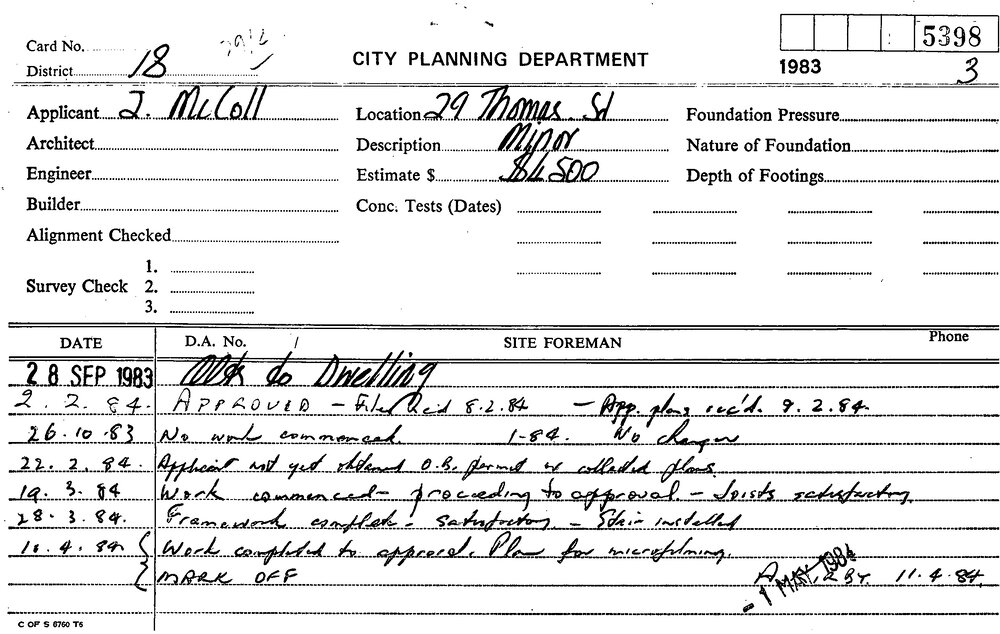 5398
Card No.
District 18
CITY PLANNING DEPARTMENT
1983
3
Applicant J. McColl
Location 29 Thomas St
Foundation Pressure
Architect
Description Minor
Nature of Foundation
Engineer
Estimate $ $4500
Depth of Footings
Builder
Conc. Tests (Dates)
Alignment Checked
Survey Check 1.
2.
3.
DATE D.A. No. / SITE FOREMAN Phone
28 SEP 1983 Alts to Dwelling
2.2.84. APPROVED - File Rec'd 8.2.84 - App. plans rec'd. 9.2.84.
26.10.83 No work commenced. 1-84. No changes
22.2.84. Applicant not yet obtained O.B. permit or collected plans.
19.3.84 Work commenced - proceeding to approval - Joists satisfactory.
28.3.84. Framework complete - satisfactory - Stair installed
11.4.84 Work completed to approval. Plan for microfilming.
MARK OFF 11.4.84.
- 1 MAY 1984
C OF S 6760 T6